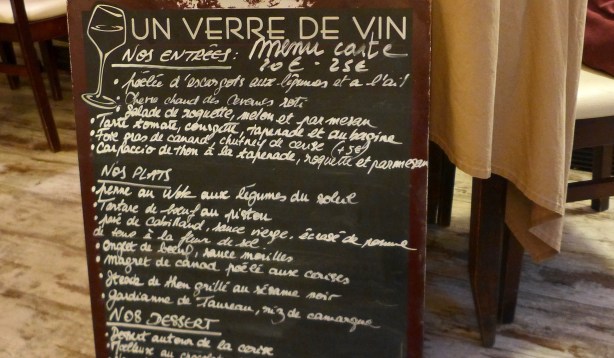 UN VERRE DE VIN
Nos ENTRÉES: Menu carte
20€ - 25€
• poêlée d'escargots aux légumes et a l'ail
• Chèvre chaud des Cévennes roti
• Salade de roquette, melon et parmesan
• Tarte tomate, courgette, tapenade et aubagine
• Foie gras de canard, chutney de cerise (+5€)
• Carpaccio de thon à la tapenade, roquette et parmesan
Nos PLATS
• penne au Wok aux légumes du soleil
• Tartare de boeuf au pistou
• pavé de Cabillaud, sauce vierge, écrasé de pomme
de terre à la fleur de sel.
• onglet de boeuf, sauce morilles
• magret de canard poêlé aux cerises
• Steack de thon grillé au sésame noir
• Gardianne de Taureau, riz de camargue
NOS DESSERT
• Dessert autour de la cerise
• Moelleux au chocolat